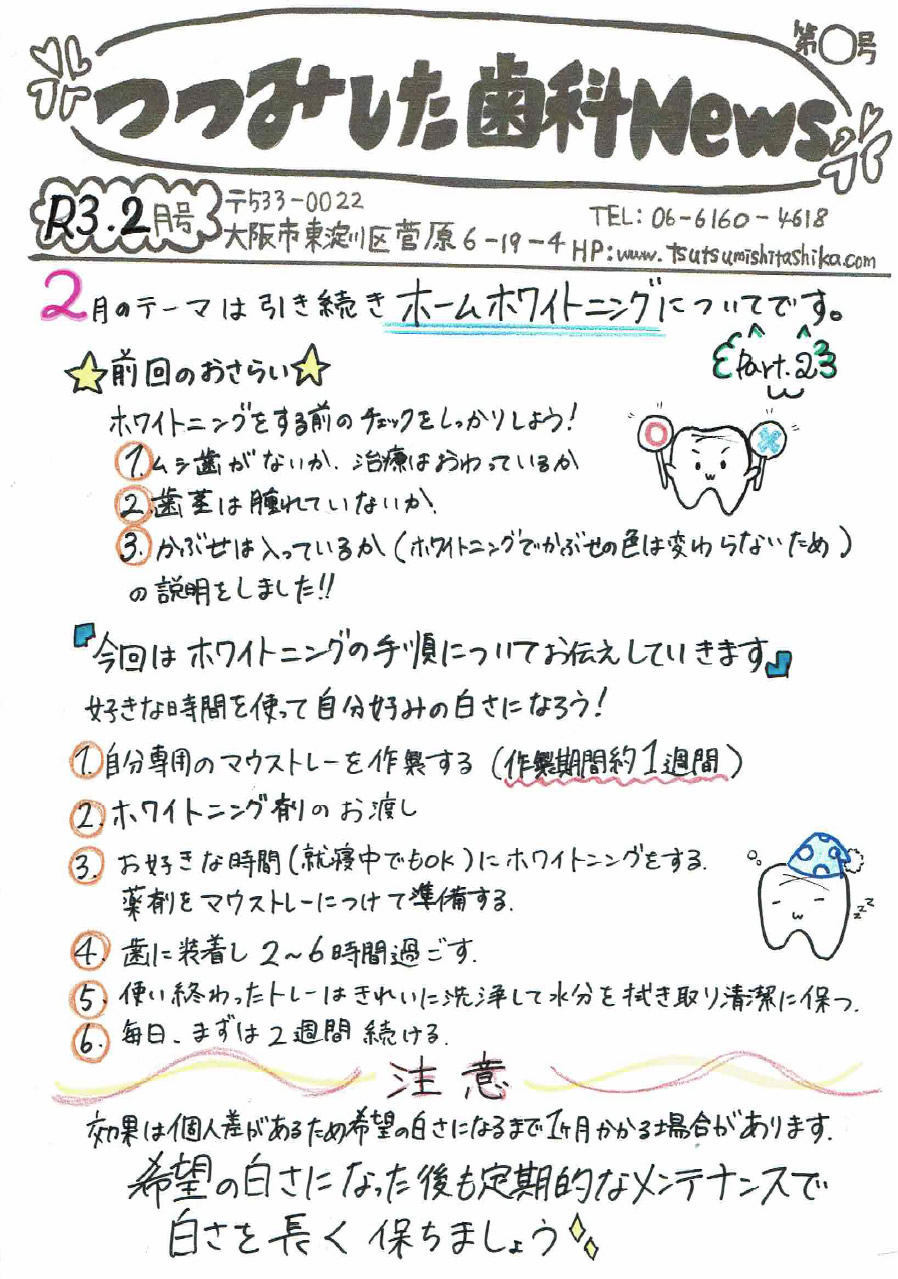 第〇号
つつみした歯科News
R3.2月号
〒533-0022
大阪市東淀川区菅原6-19-4
TEL: 06-6160-4618
HP:www.tsutsumishitashika.com
2月のテーマは引き続きホームホワイトニングについてです。
Part.2
☆前回のおさらい☆
ホワイトニングをする前のチェックをしっかりしよう!
1.ムシ歯がないか、治療はおわっているか
2.歯茎は腫れていないか、
3.かぶせは入っているか(ホワイトニングでかぶせの色は変わらないため)
の説明をしました!!
『今回はホワイトニングの手順についてお伝えしていきます』
好きな時間を使って自分好みの白さになろう!
1.自分専用のマウストレーを作製する(作製期間約1週間)
2.ホワイトニング剤のお渡し
3.お好きな時間(就寝中でもOK)にホワイトニングをする.
薬剤をマウストレーにつけて準備する.
4.歯に装着し2~6時間過ごす.
zzz
5.使い終わったトレーはきれいに洗浄して水分を拭き取り清潔に保つ.
6.毎日、まずは2週間続ける.
注意
効果は個人差があるため希望の白さになるまで1ヶ月かかる場合があります.
希望の白さになった後も定期的なメンテナンスで
白さを長く保ちましょう